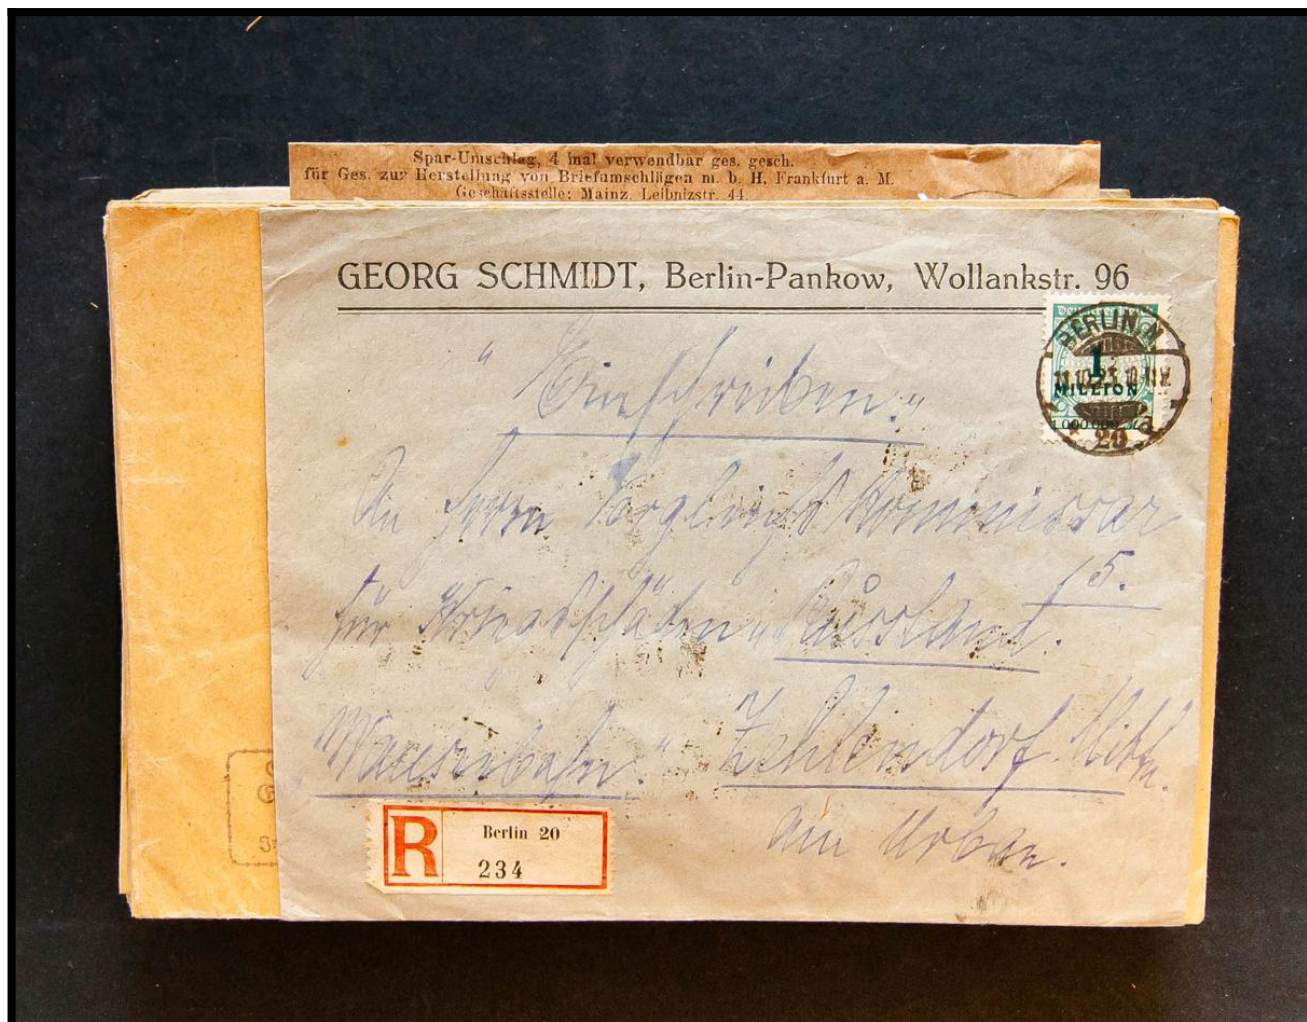 Spar-Umschlag, 4 mal verwendbar ges. gesch.
für Ges. zur Herstellung von Briefumschlägen m. b. H. Frankfurt a. M.
Geschäftsstelle: Mainz, Leibnizstr. 44.
GEORG SCHMIDT, Berlin-Pankow, Wollankstr. 96
BERLIN N
1
MILLION
20 a
"Einschreiben."
An Herrn Vergleichskommissar
für Kriegsschäden "Russland.
5.
Zehlendorf. Mitte.
am Urban.
R Berlin 20
234